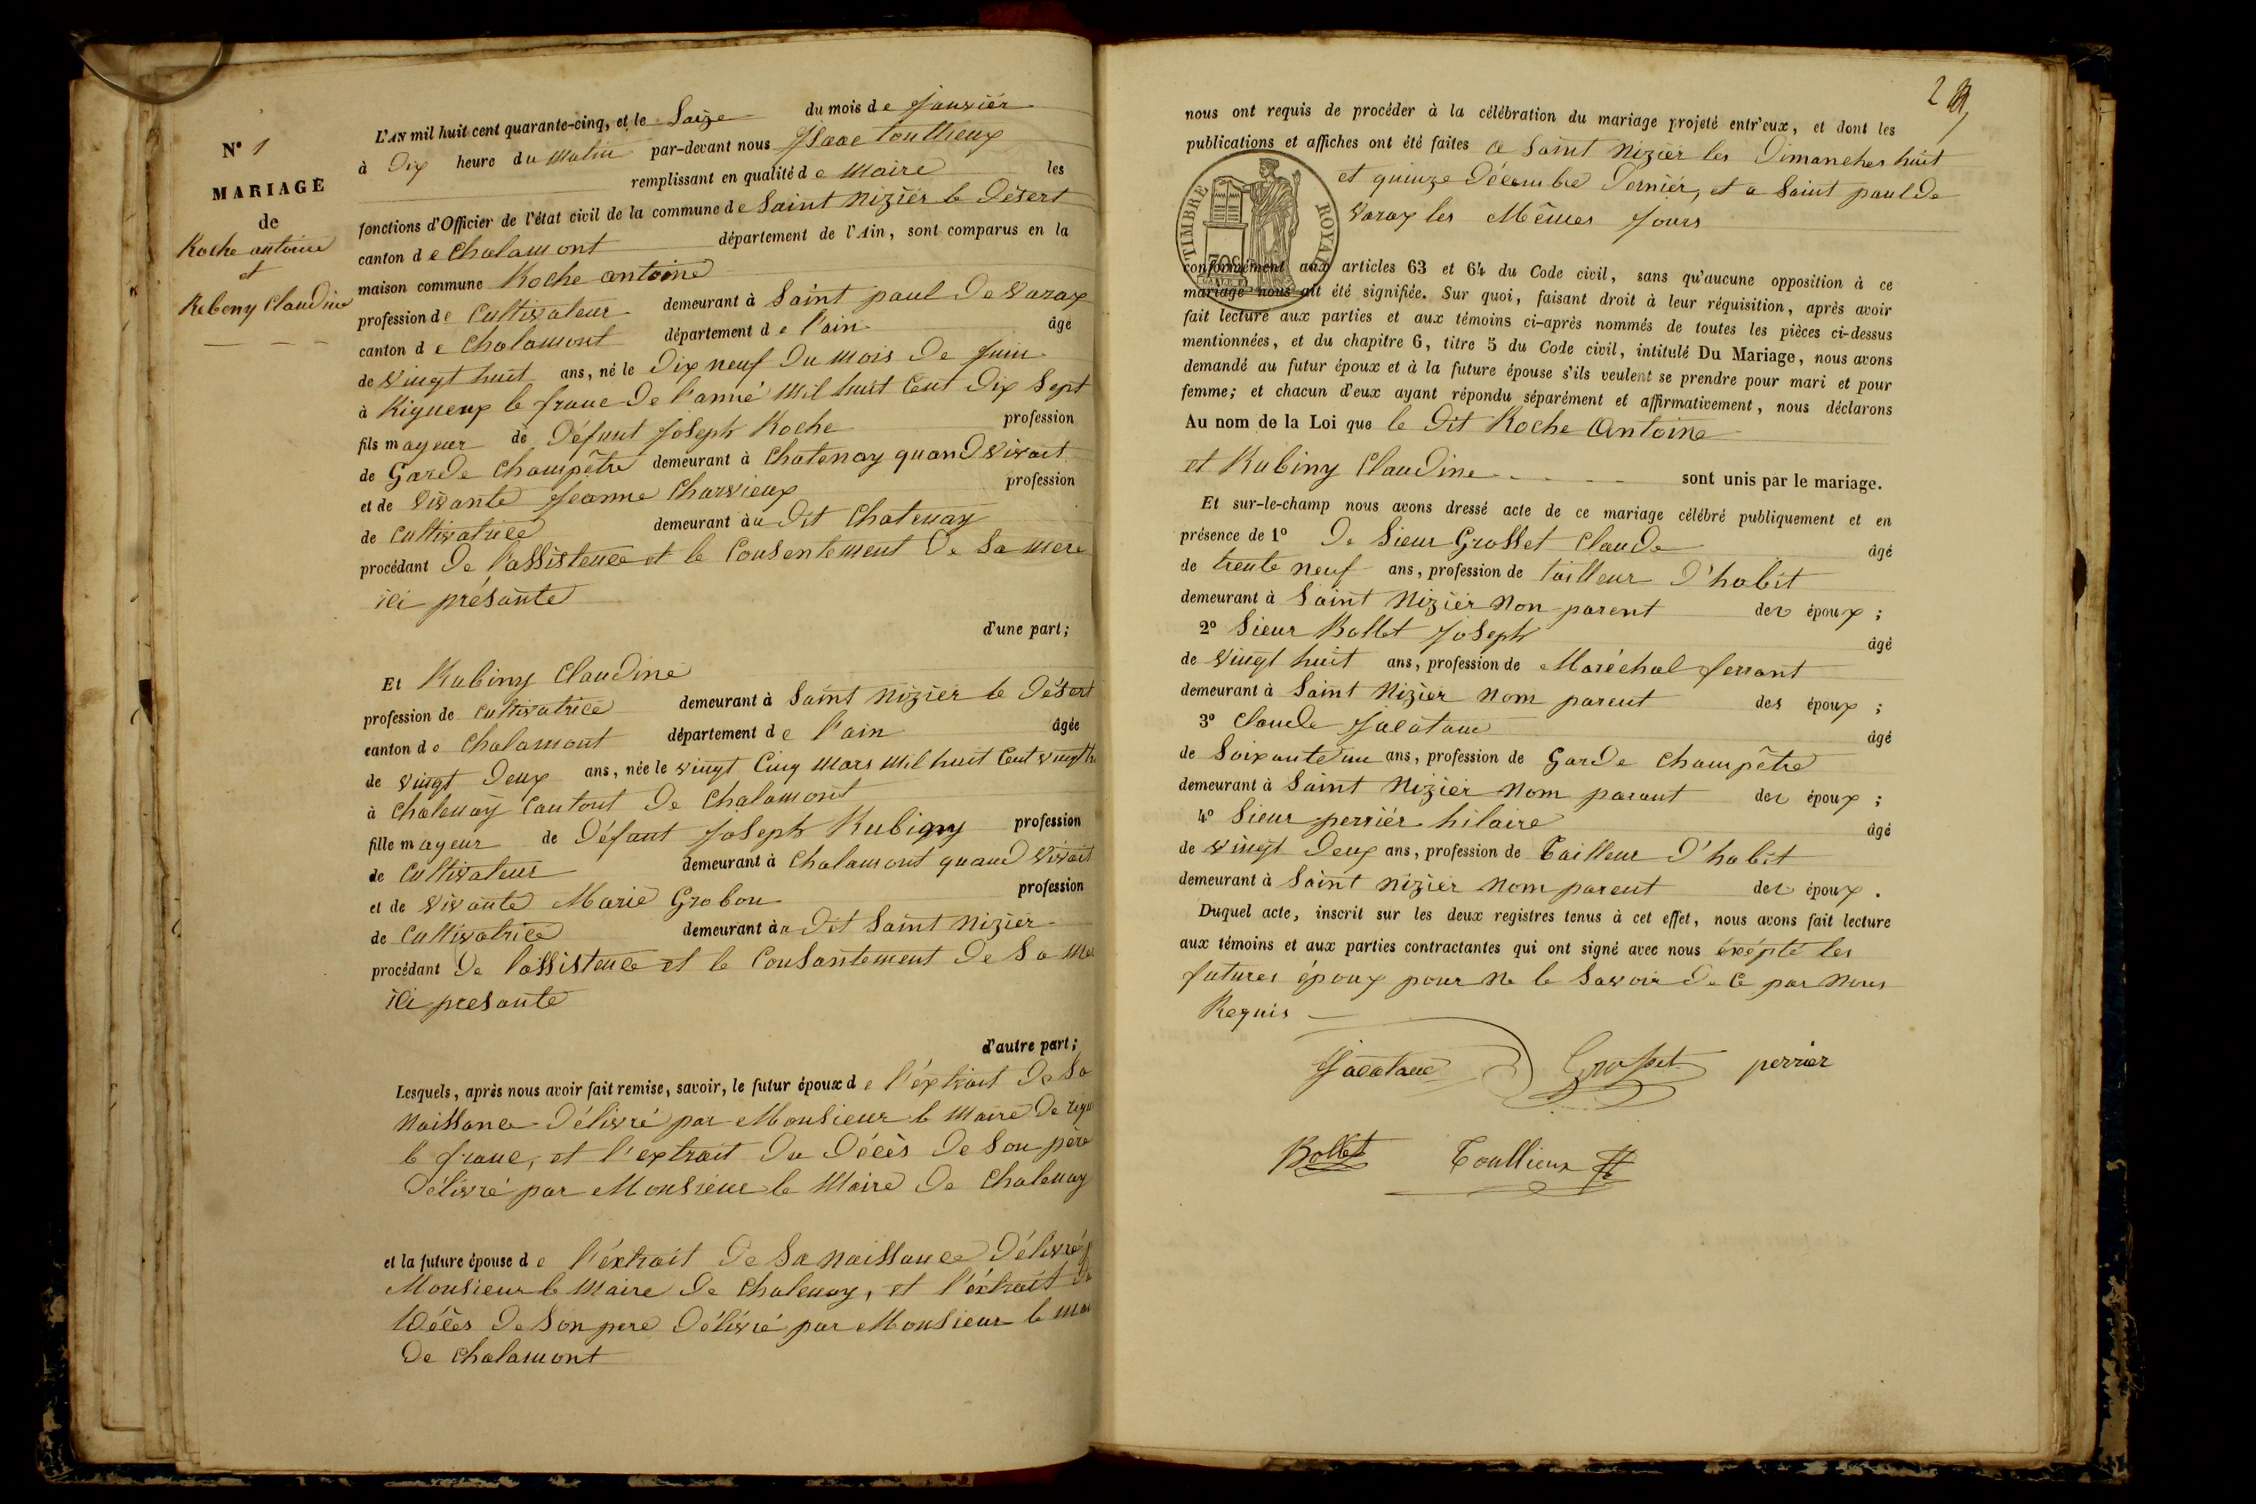 N° 1
MARIAGE
de
Roche antoine
et
Rubeny Claudine
L'AN mil huit cent quarante-cinq, et le Saize du mois de janviér
à Dix heure du Matin par-devant nous Isaac Toullieux
remplissant en qualité de Maire les
fonctions d'Officier de l'état civil de la commune de Saint Niziér le Désert
canton de Chalamont département de l'Ain, sont comparus en la
maison commune Roche antoine
profession de Cultivateur demeurant à Saint paul De Varax
canton de Chalamont département de l'ain âgé
de Vingt huit ans, né le Dix neuf Du Mois De Juin
à Rigneux le franc De l'anné Mil huit Cent Dix Sept
fils mayeur de Défunt Joseph Roche profession
de Garde Champêtre demeurant à Chatenay quand Vivait
et de Vivante Jeanne Charvieux profession
de Cultivatrice demeurant àu Dit Chatenay
procédant De l'assistence et le Consentement De Sa Mere
ici présante
d'une part;
Et Rubiny Claudine
profession de Cultivatrice demeurant à Saint Niziér le Désert
canton de Chalamont département de l'ain âgée
de Vingt Deux ans, née le Vingt Cinq Mars Mil huit Cent Vingt
à Chatenay Cantont De Chalamont
fille mayeur de Défant Joseph Rubigny profession
de Cultivateur demeurant à Chalamont quand Vivait
et de Vivante Marie Grobon profession
de Cultivatrice demeurant àu Dit Saint Niziér
procédant De l'assistence et le Consantement De Sa
ici presante
d'autre part;
Lesquels, après nous avoir fait remise, savoir, le futur époux de l'éxtrait De Sa
Naissance Délivré par Monsieur le Maire De
le franc, et l'extrait Du Décès De Son père
Délivré par Monsieur le Maire De Chatenay
et la future épouse de l'éxtrait De Sa Naissance Délivré
Monsieur le Maire De Chatenay, et l'éxtrait
Décès De Son pere Délivré par Monsieur le
De Chalamont
nous ont requis de procéder à la célébration du mariage projeté entr'eux, et dont les
publications et affiches ont été faites a Saint Niziér les Dimanches huit
et quinze Décembre Dernièr, et a Saint paul De
Varax les Mêmes Jours
TIMBRE ROYAL
70C
conformément aux articles 63 et 64 du Code civil, sans qu'aucune opposition à ce
mariage nous ait été signifiée. Sur quoi, faisant droit à leur réquisition, après avoir
fait lecture aux parties et aux témoins ci-après nommés de toutes les pièces ci-dessus
mentionnées, et du chapitre 6, titre 5 du Code civil, intitulé Du Mariage, nous avons
demandé au futur époux et à la future épouse s'ils veulent se prendre pour mari et pour
femme; et chacun d'eux ayant répondu séparément et affirmativement, nous déclarons
Au nom de la Loi que le Dit Roche Antoine
et Rubiny Claudine sont unis par le mariage.
Et sur-le-champ nous avons dressé acte de ce mariage célébré publiquement et en
présence de 1° De Sieur Grosset Claude âgé
de trente neuf ans, profession de tailleur D'habit
demeurant à Saint Niziér Non parent des époux;
2° Sieur Bollet Joseph âgé
de Vingt huit ans, profession de Maréchal ferrant
demeurant à Saint Niziér Nom parent des époux;
3° Claude Jacatane âgé
de Soixante un ans, profession de Garde Champêtre
demeurant à Saint Niziér Nom parant des époux;
4° Sieur perriér hilaire âgé
de Vingt Deux ans, profession de Tailleur D'habit
demeurant à Saint Niziér Nom parent des époux.
Duquel acte, inscrit sur les deux registres tenus à cet effet, nous avons fait lecture
aux témoins et aux parties contractantes qui ont signé avec nous éxépté les
futures époux pour Ne le Savoir De Ce par Nous
Requis
Jacatane Grosset perrier
Bollet Toullieux